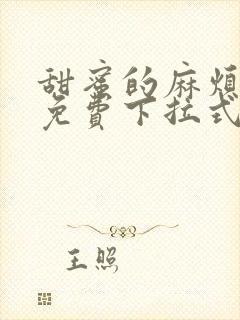 甜蜜的麻煩
免費下拉式
王照